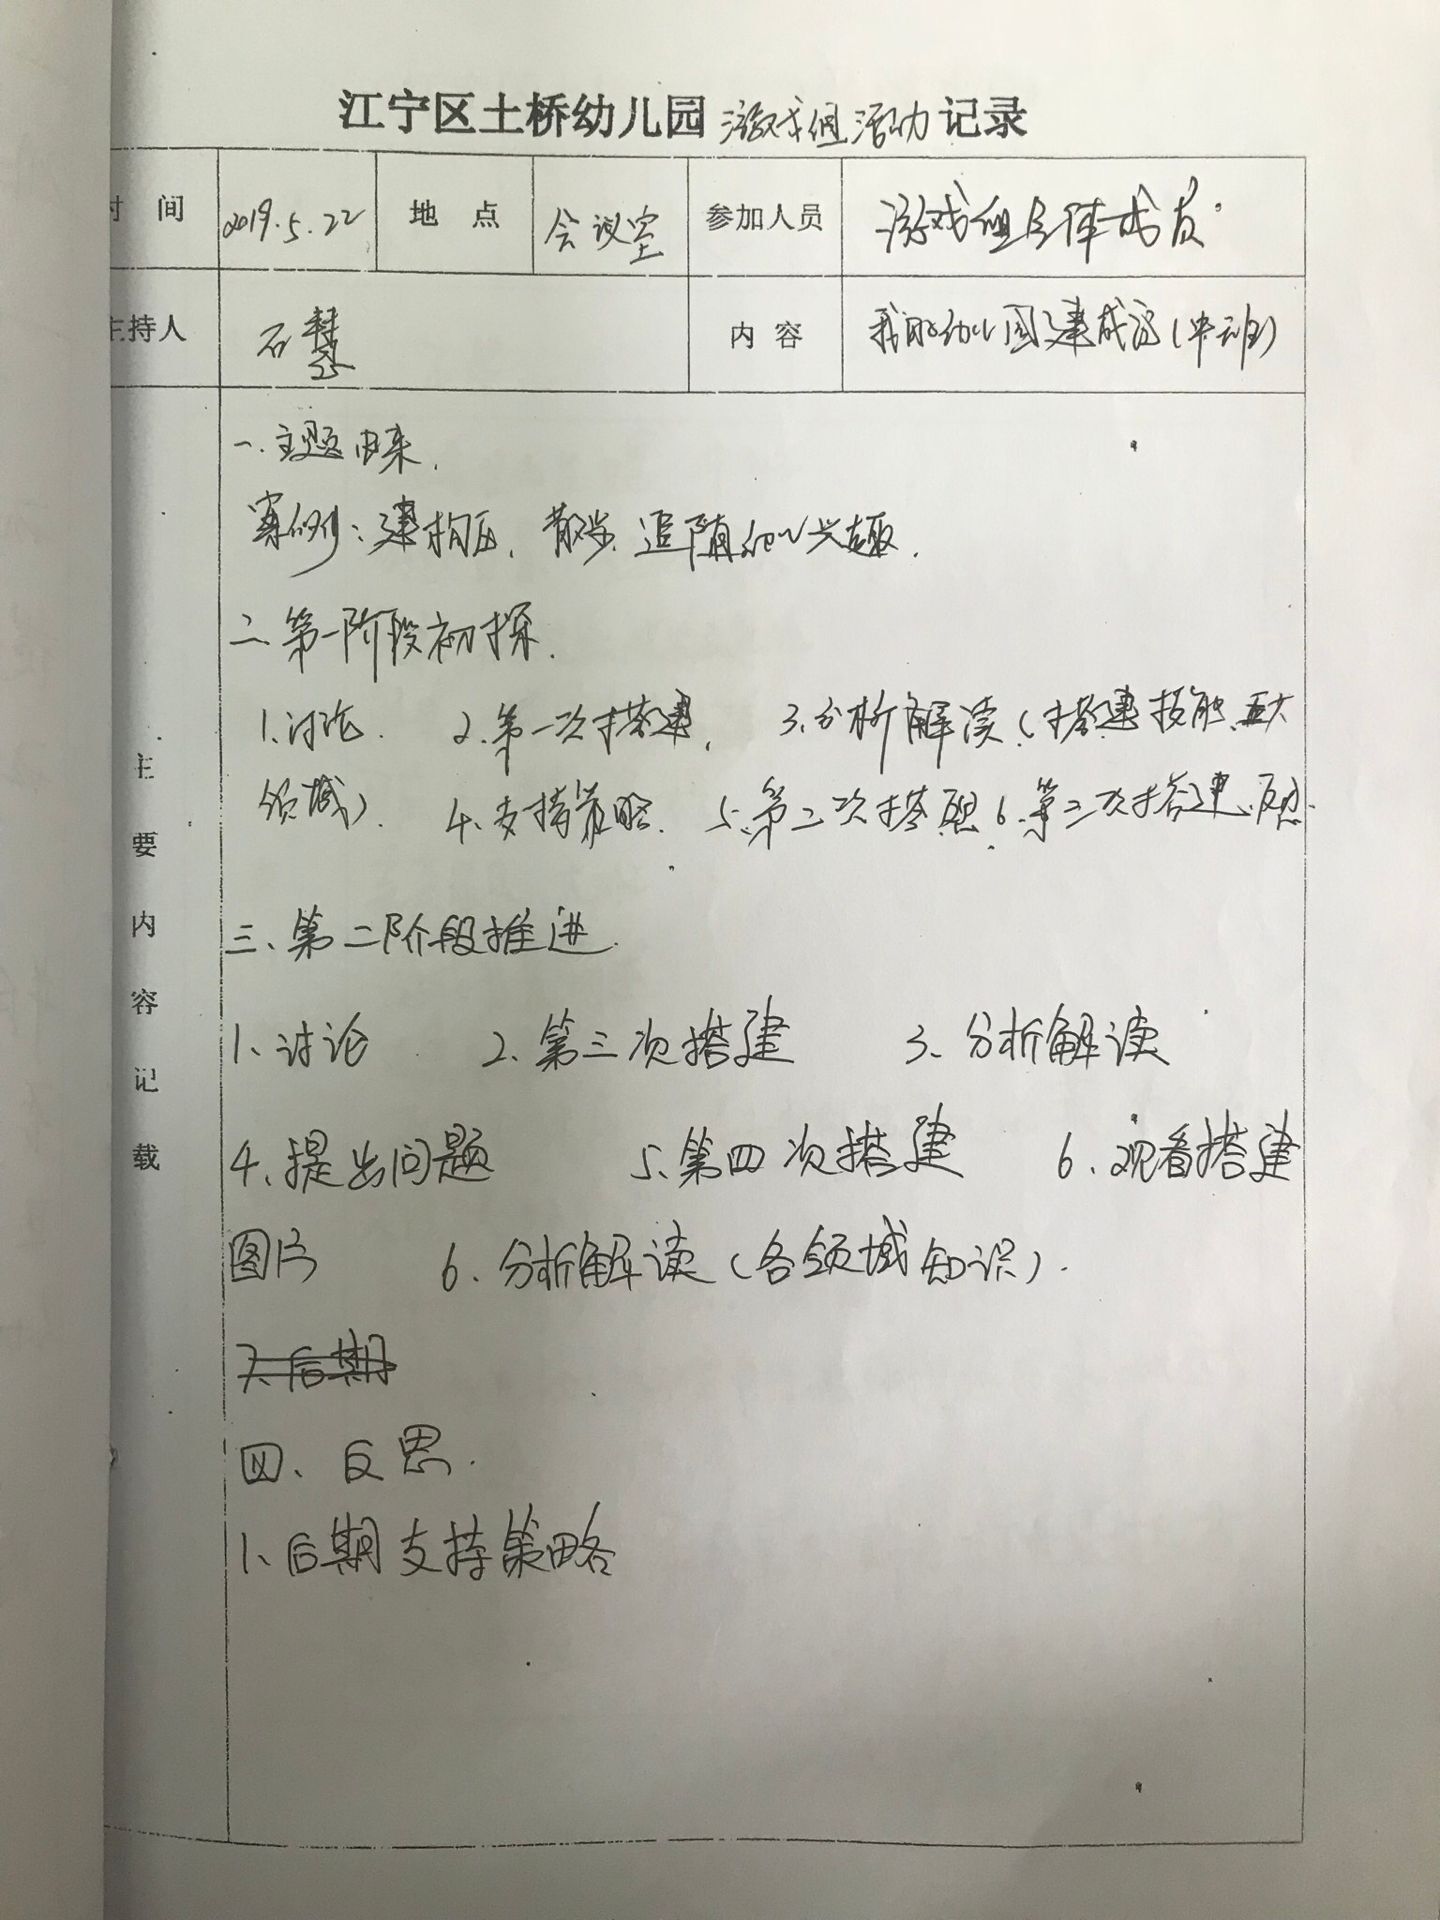 江宁区土桥幼儿园 游戏组活动 记录
时 间 2019.5.22 地 点 会议室 参加人员 游戏组全体成员.
主持人 石慧 内 容 我的幼儿园建成记(中班)
主要内容记载
一.主题由来.
案例:建构区、散步.追随幼儿兴趣.
二.第一阶段初探.
1.讨论. 2.第一次搭建. 3.分析解读(搭建技能、五大
领域). 4.支持策略. 5.第二次搭建 6.第二次搭建、反思.
三、第二阶段推进.
1、讨论 2、第三次搭建 3、分析解读
4.提出问题 5.第四次搭建 6.观看搭建
图片 6.分析解读(各领域知识).
7.后期
四、反思.
1、后期支持策略